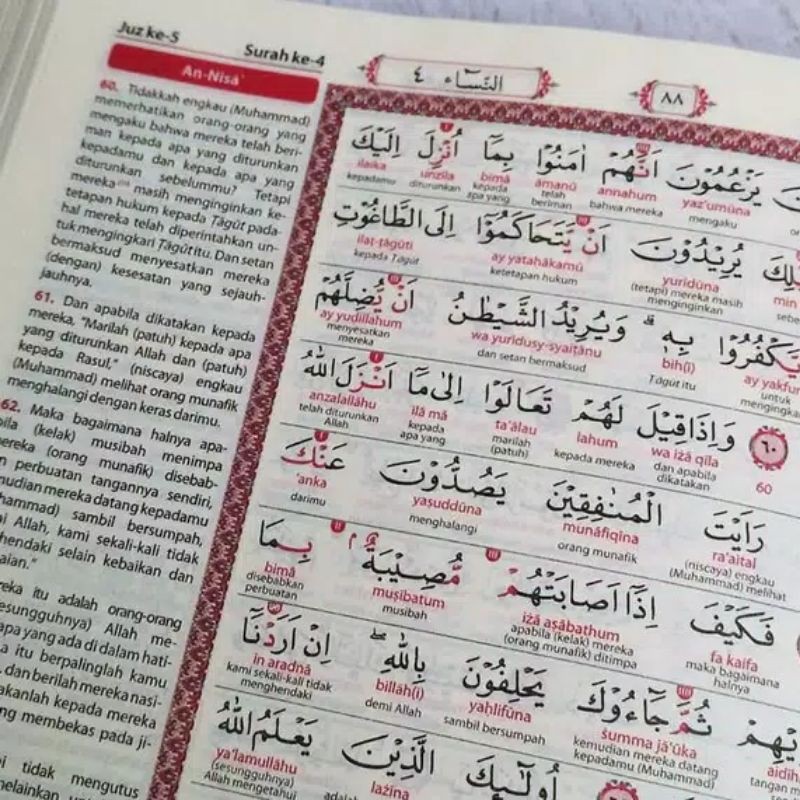 Juz ke-5
Surah ke-4
An-Nisā'
النسآء ٤
٨٨
60. Tidakkah engkau (Muhammad)
memerhatikan orang-orang yang
mengaku bahwa mereka telah beri-
man kepada apa yang diturunkan
kepadamu dan kepada apa yang
diturunkan sebelummu? Tetapi
mereka masih menginginkan ke-
tetapan hukum kepada Ṭāgūt pada-
hal mereka telah diperintahkan un-
tuk mengingkari Ṭāgūt itu. Dan setan
bermaksud menyesatkan mereka
(dengan) kesesatan yang sejauh-
jauhnya.
61. Dan apabila dikatakan kepada
mereka, "Marilah (patuh) kepada apa
yang diturunkan Allah dan (patuh)
kepada Rasul," (niscaya) engkau
(Muhammad) melihat orang munafik
menghalangi dengan keras darimu.
62. Maka bagaimana halnya apa-
bila (kelak) musibah menimpa
mereka (orang munafik) disebab-
perbuatan tangannya sendiri,
mudian mereka datang kepadamu
hammad) sambil bersumpah,
i Allah, kami sekali-kali tidak
hendaki selain kebaikan dan
aian."
reka itu adalah orang-orang
esungguhnya) Allah me-
apa yang ada di dalam hati-
a itu berpalinglah kamu
, dan berilah mereka nasi-
akanlah kepada mereka
ng membekas pada ji-
tidak mengutus
melainkan
يَزْعُمُوْنَ اَنَّهُمْ اٰمَنُوْا بِمَآ اُنْزِلَ اِلَيْكَ
yaz'umūna annahum āmanū bimā unzila ilaika
mengaku bahwa mereka telah beriman kepada apa yang diturunkan kepadamu
يُرِيْدُوْنَ اَنْ يَّتَحَاكَمُوْٓا اِلَى الطَّاغُوْتِ
min yurīdūna ay yataḥākamū ilaṭ-ṭāgūti
(tetapi) mereka masih menginginkan ketetapan hukum kepada Ṭāgūt
يَّكْفُرُوْا بِهٖ ۗ وَيُرِيْدُ الشَّيْطٰنُ اَنْ يُّضِلَّهُمْ
ay yakfur bih(ī) wa yurīdusy-syaiṭānu ay yuḍillahum
untuk mengingka Ṭāgūt itu dan setan bermaksud menyesatkan mereka
٦٠ وَاِذَا قِيْلَ لَهُمْ تَعَالَوْا اِلٰى مَآ اَنْزَلَ اللّٰهُ
60 wa iżā qīla lahum ta'ālau ilā mā anzalallāhu
dan apabila dikatakan kepada mereka marilah (patuh) kepada apa yang telah diturunkan Allah
رَاَيْتَ الْمُنٰفِقِيْنَ يَصُدُّوْنَ عَنْكَ
ra'aital munāfiqīna yaṣuddūna 'anka
(niscaya) engkau (Muhammad) melihat orang munafik menghalangi darimu
فَكَيْفَ اِذَآ اَصَابَتْهُمْ مُّصِيْبَةٌ ۢ بِمَا
fa kaifa iżā aṣābathum muṣībatum bimā
maka bagaimana halnya apabila (kelak) mereka (orang munafik) ditimpa musibah disebabkan perbuatan
يْهِمْ ثُمَّ جَاۤءُوْكَ يَحْلِفُوْنَ بِاللّٰهِ ۖ اِنْ اَرَدْنَآ
aidīh ṡumma jā'ūka yaḥlifūna billāh(i) in aradnā
tangan m kemudian mereka datang kepadamu (Muhammad) sambil bersumpah demi Allah kami sekali-kali tidak menghendaki
اُولٰۤىِٕكَ الَّذِيْنَ يَعْلَمُ اللّٰهُ
lażīna ya'lamullāhu
(sesungguhnya) Allah mengetahui